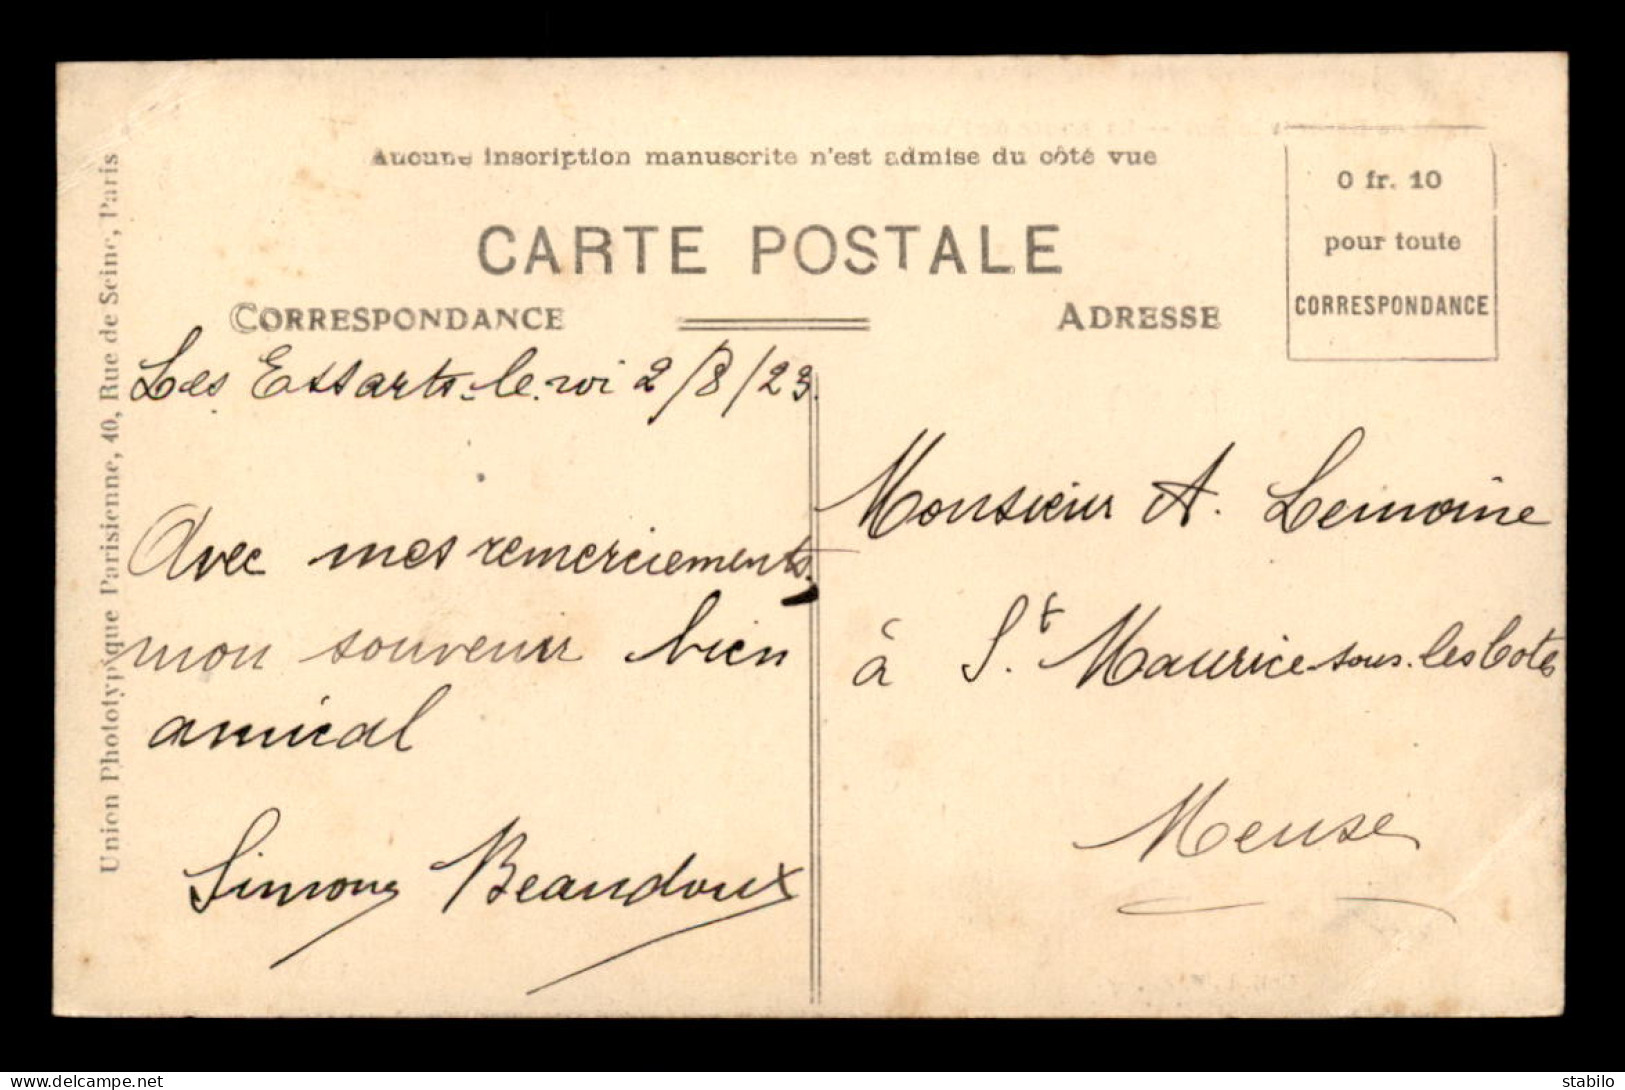 Aucune inscription manuscrite n'est admise du côté vue
CARTE POSTALE
CORRESPONDANCE
ADRESSE
0 fr. 10
pour toute
CORRESPONDANCE
Union Phototypique Parisienne, 40, Rue de Seine, Paris
Les Essarts-le-roi 2/8/23.
Avec mes remerciements,
mon souvenir bien
amical
Simone Beaudoux
Monsieur A. Lemoine
à St Maurice-sous-les Cotes
Meuse
delcampe.net
stabilo